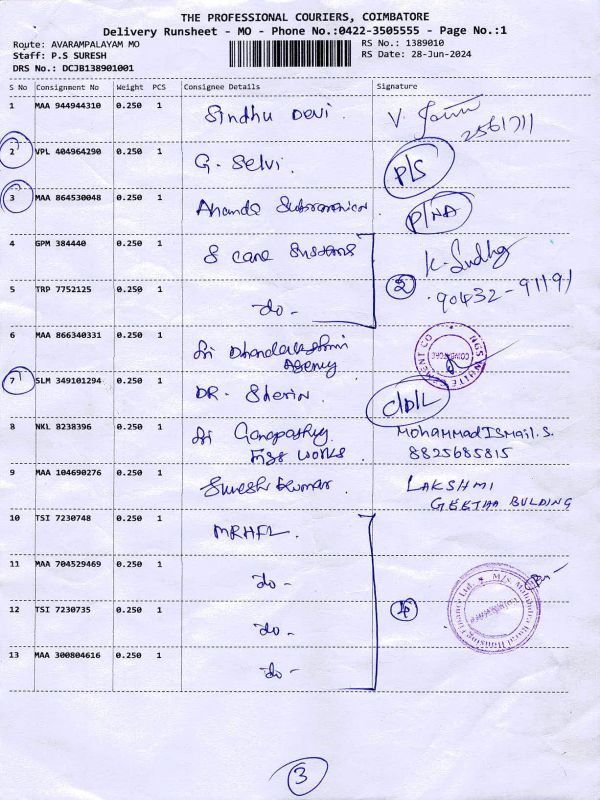 THE PROFESSIONAL COURIERS, COIMBATORE
Delivery Runsheet - MO - Phone No.:0422-3505555 - Page No.:1
Route: AVARAMPALAYAM MO
RS No.: 1389010
Staff: P.S SURESH
RS Date: 28-Jun-2024
DRS No.: DCJB138901001
S No Consignment No Weight PCS Consignee Details Signature
1 MAA 944944310 0.250 1 Sindhu Devi. V.
2 VPL 404964290 0.250 1 G. Selvi. P/S
3 MAA 864530048 0.250 1 P/NA
4 GPM 384440 0.250 1 S care Systems K. Sudha
2 90432-91191
5 TRP 7752125 0.250 1 do-
6 MAA 866340331 0.250 1 Sri Dhandalakshmi
Agency
7 SLM 349101294 0.250 1 DR. Sherin C/D/L
8 NKL 8238396 0.250 1 Sri Ganapathy MohammadISmail.S.
works 8825685815
9 MAA 104690276 0.250 1 Suresh Kumar LAKSHMI
GEETHA BULDING
10 TSI 7230748 0.250 1 MRHFL.
11 MAA 704529469 0.250 1 do-
12 TSI 7230735 0.250 1 do-
4
M/s. Mahindra Rural Housing Finance Ltd.
13 MAA 300804616 0.250 1 do-
3